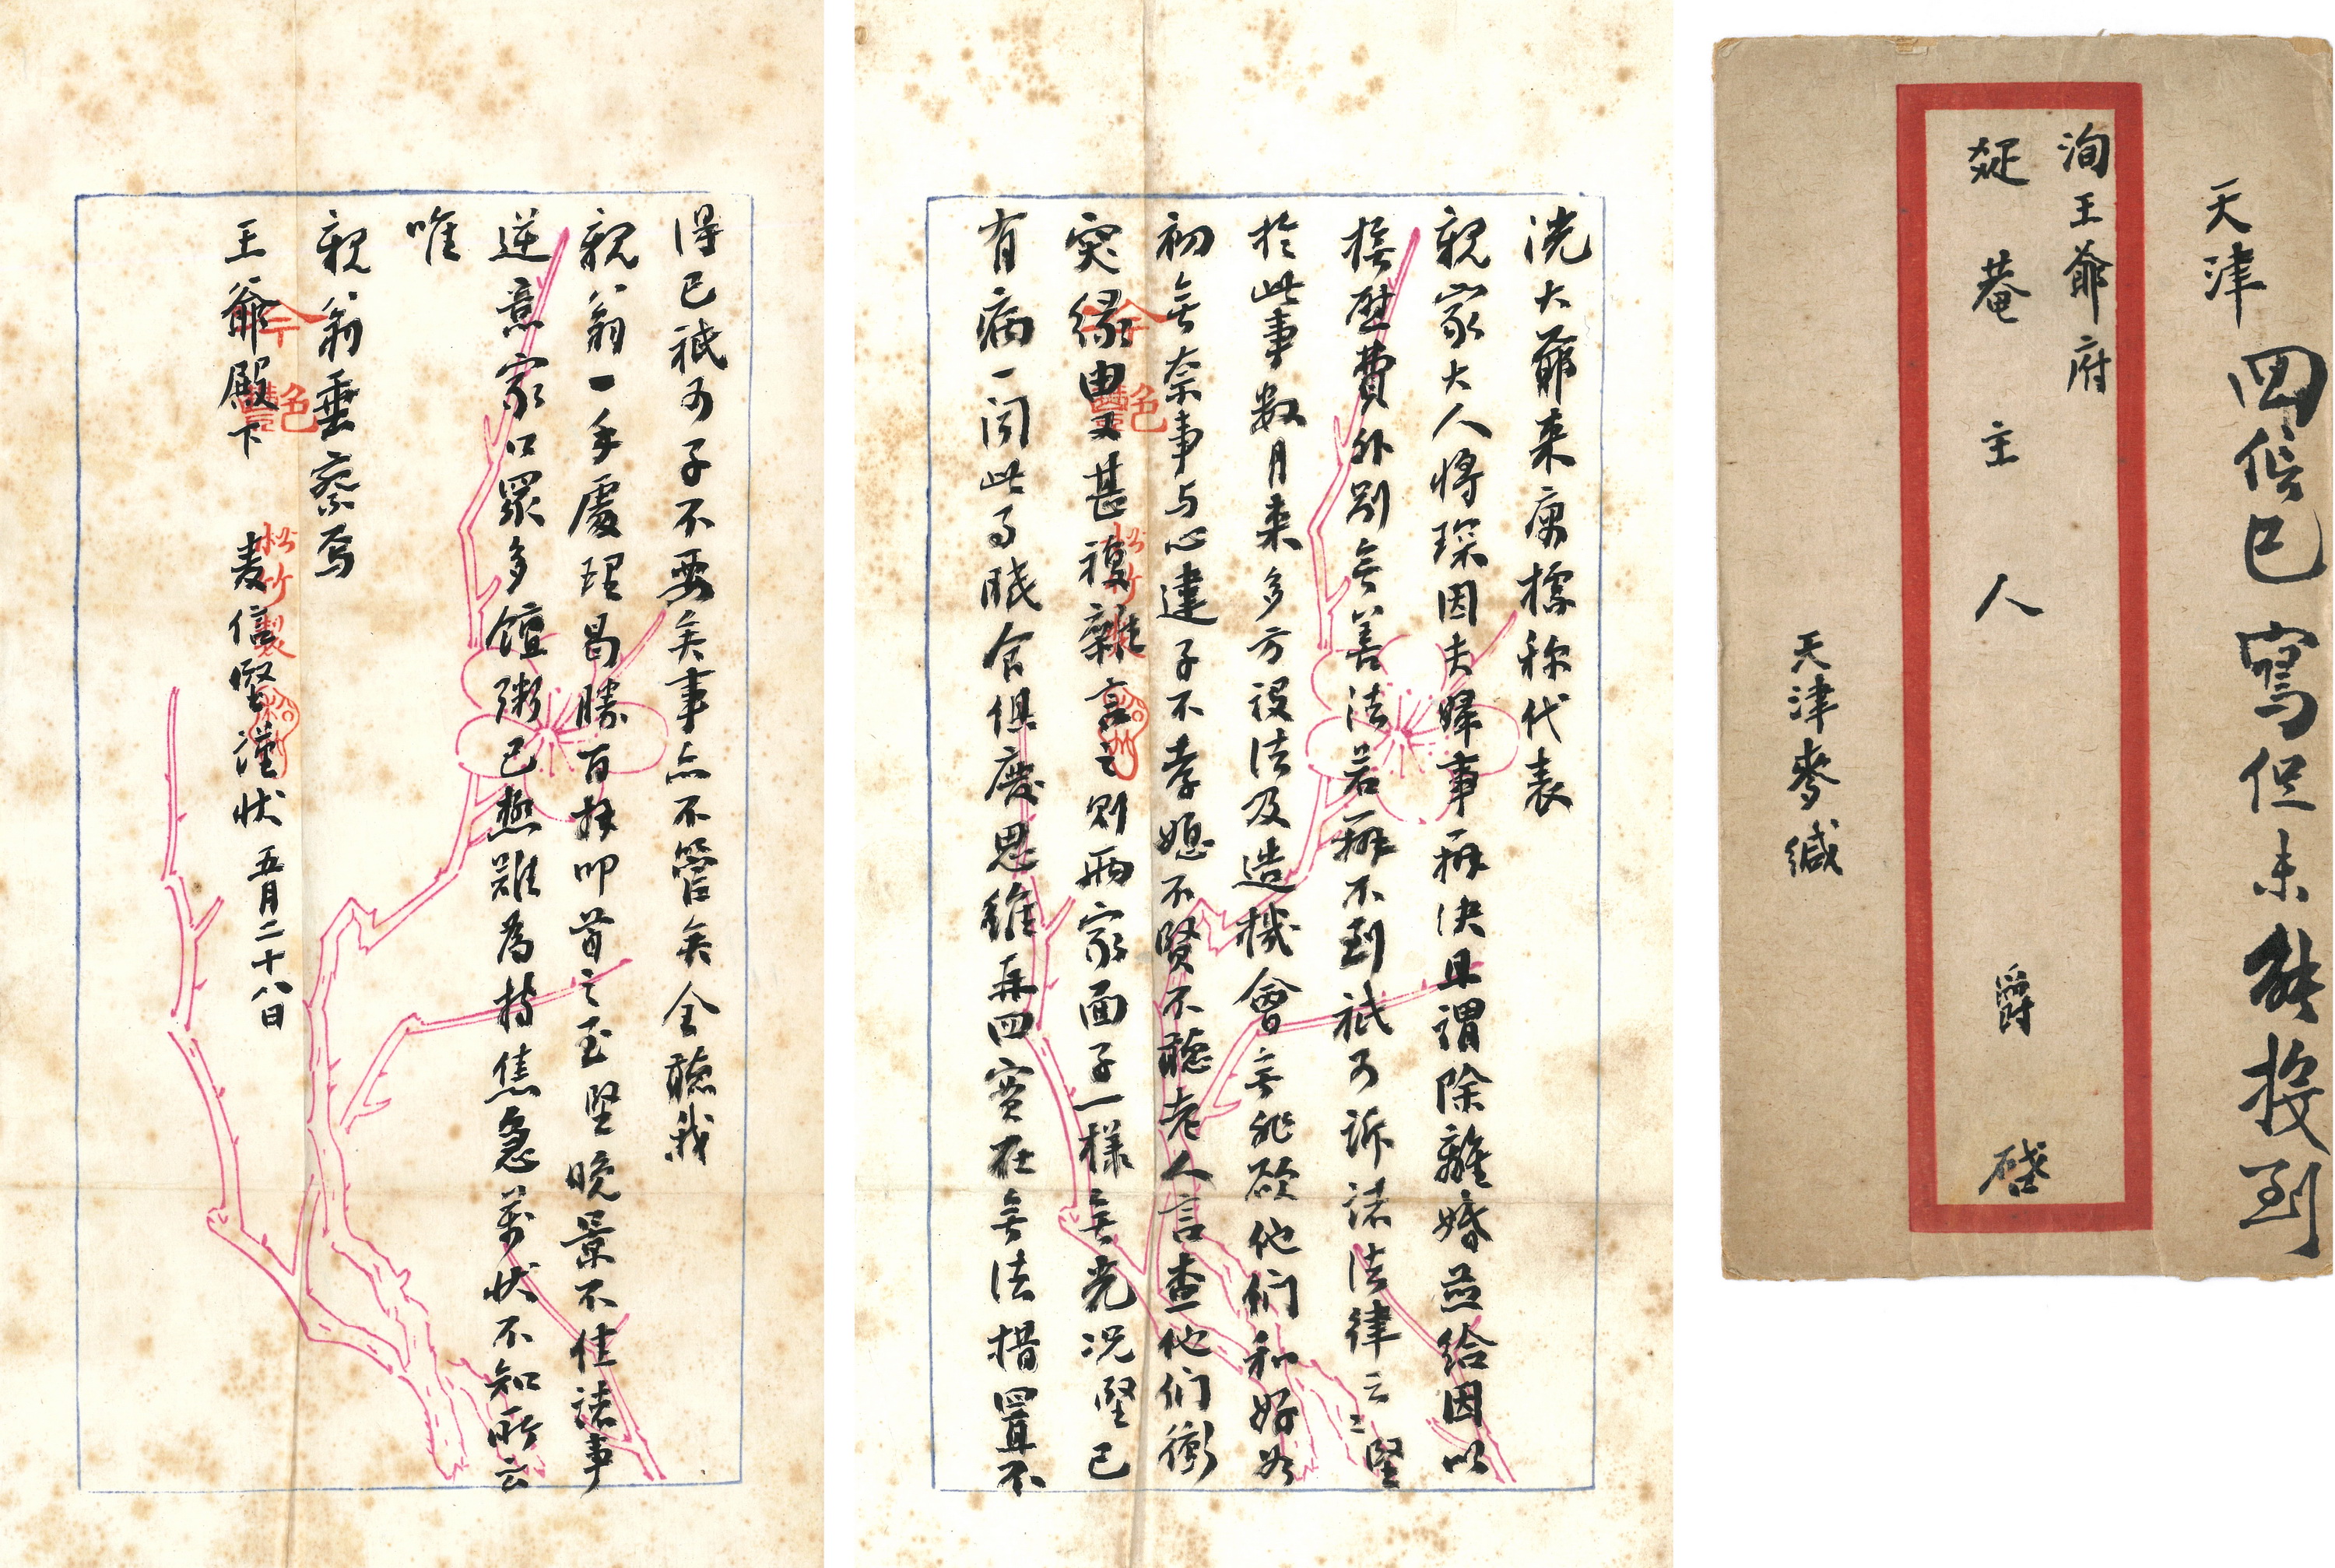 天津 四信已寫但未能投到
洵王爺府
菴主人 爵 啓
天津麥緘
洗大爺來據稱代表
親家大人將琛因夫婦事辦決且謂除離婚並給因以
費外別無善法若辦不到祇可訴諸法律云云堅
於此事數月來多方設法及造機會無非欲他們和好如
初無奈事与心違子不孝媳不賢不聽老人言查他們衝
突緣由又甚複雜言之則兩家面子一樣無光況堅已
有病一聞此事眠食俱廢思維再四實在無法措置不
松竹製
得已祇可子不要矣事亦不管矣全聽我
親翁一手處理曷勝百拜叩首之至堅晚景不佳諸事
逆意家口眾多饘粥已極難為持焦急萬狀不知所云
唯
親翁垂察焉
王爺殿下 麦信堅謹狀 五月二十八日
松竹製